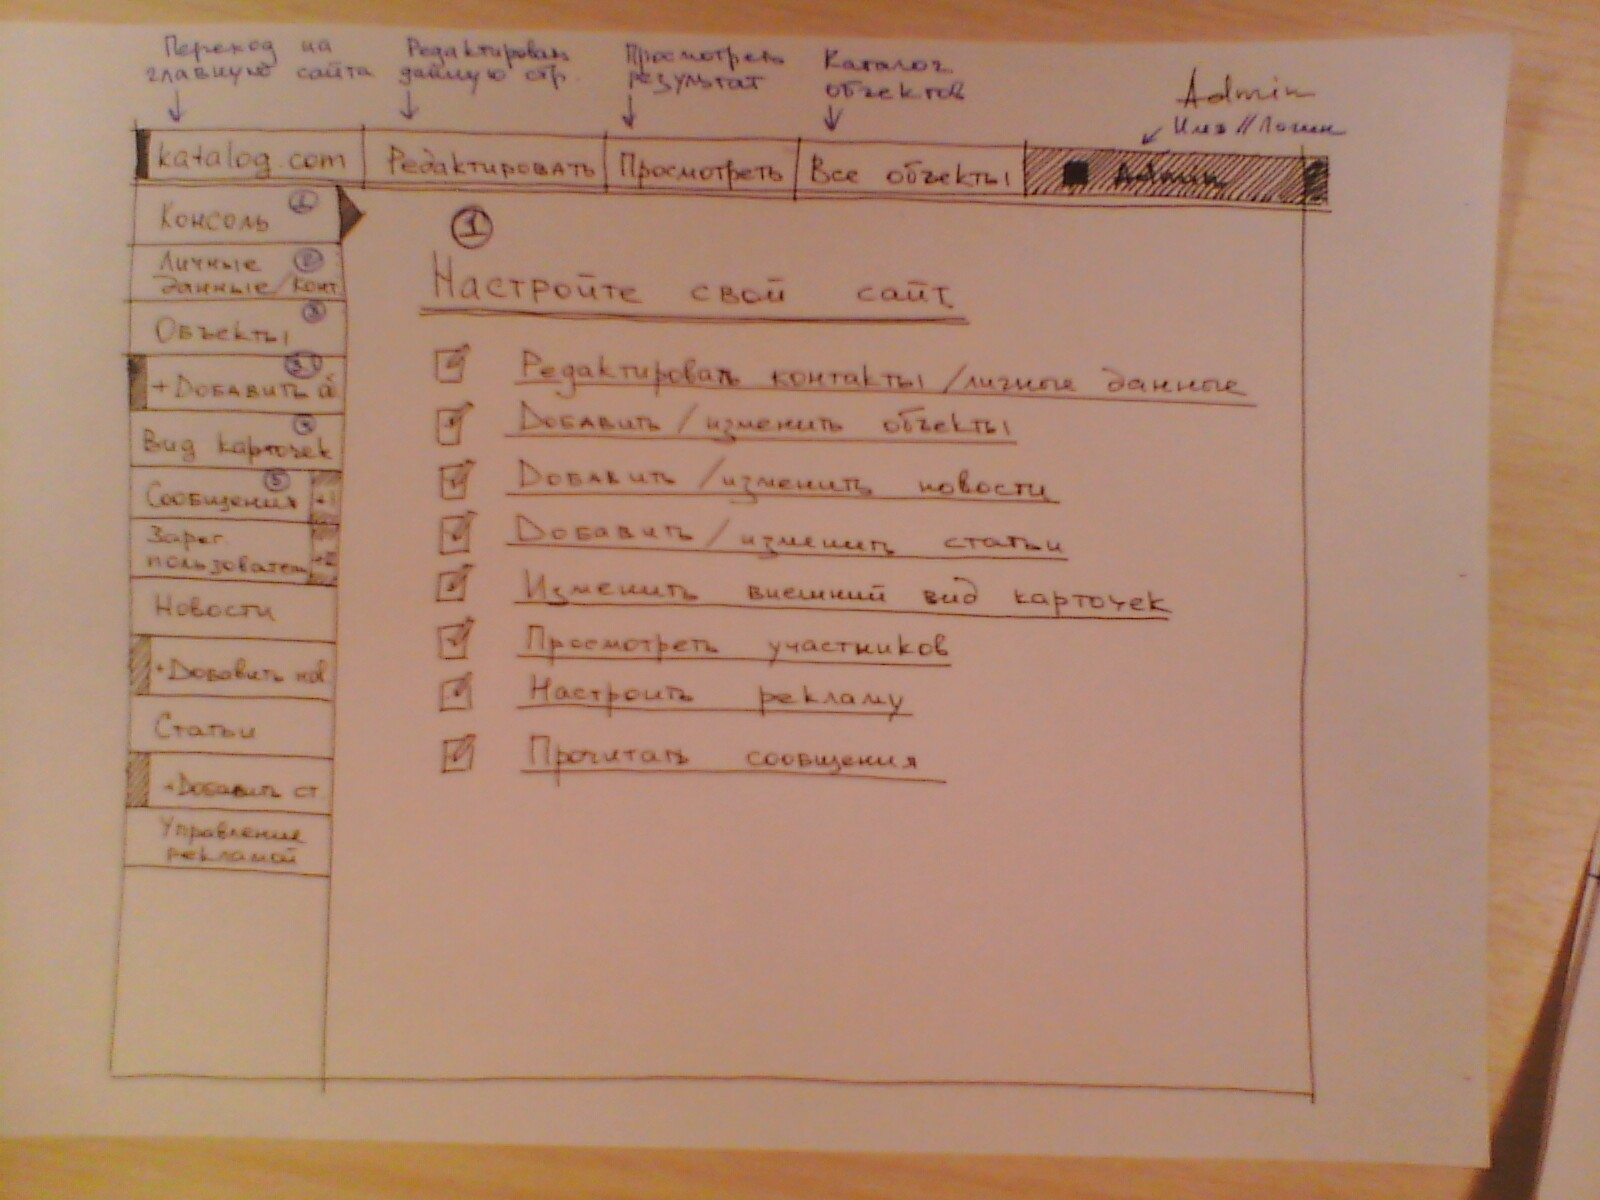 Переход на
главную сайта
Редактировать
данную стр.
Просмотреть
результат
Каталог
объектов
Admin
Имя//Логин
katalog.com
Редактировать
Просмотреть
Все объекты
Admin
Консоль 1
Личные 2
данные/конт
Объекты 3
3.1
+Добавить
Вид карточек 4
Сообщения 5 +1
Зарег.
пользовател
Новости
+Добавить нов
Статьи
+Добавить ст
Управление
рекламой
1
Настройте свой сайт
Редактировать контакты/личные данные
Добавить/изменить объекты
Добавить/изменить новости
Добавить/изменить статьи
Изменить внешний вид карточек
Просмотреть участников
Настроить рекламу
Прочитать сообщения